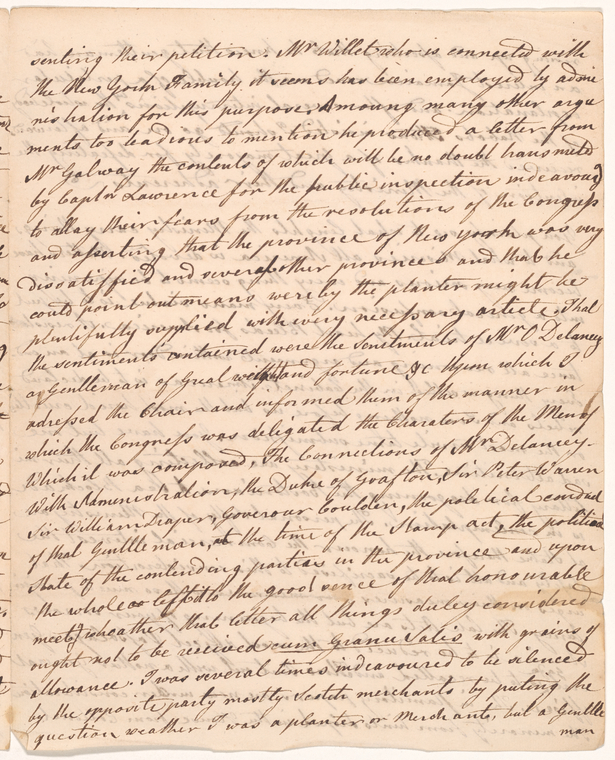 senting their petition. Mr Willet who is connected with
the New York Family it seems has been employed by admi
nistration for this purpose, Amoung many other argu
ments too teadious to mention he produced a letter from
Mr Galway the contents of which will be no doubt transmitd
by Captn Lawrence for the public inspection indeavourd
to allay their fears from the resolutions of the Congress
and asserting that the province of New york was very
dissatissfied and several other provinces and that he
could point out means wereby the planter might be
plentifully supplied with every necessary article. That
the sentiments contained were the Sentiments of Mr O Delancey
a Gentleman of Great weight and fortune &c Upon which I
adressed the Chair and informed them of the manner in
which the Congress was deligated the Charaters of the Men of
Which it was composed, The Connections of Mr Delancey
With Administration, the Duke of Grafton, Sir Peter Warren
Sir William Draper, Goverour Coulden, the political conduct
of that Gentlleman, at the time of the Stamp act, the political
state of the contending parties in the province and upon
the whole left it to the good sence of that honourable
meetg wheather that letter all things duley considered
ought not to be received cum Granu Salis with grains of
allowance. I was several times indeavoured to be silenced
by the opposite party mostly Scotch merchants by puting the
question weather I was a planter or Merchante, but a Gentlle
man